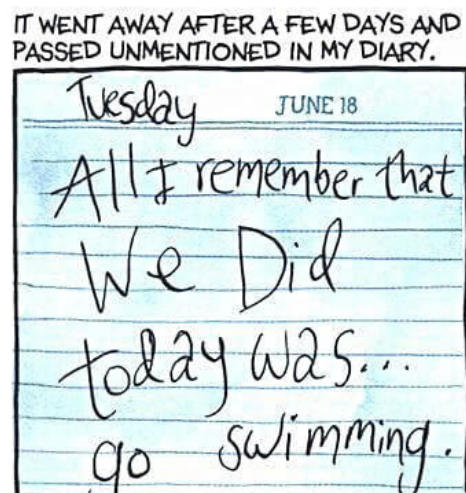 IT WENT AWAY AFTER A FEW DAYS AND
PASSED UNMENTIONED IN MY DIARY.
Tuesday JUNE 18
All I remember that
We Did
today was...
go swimming.